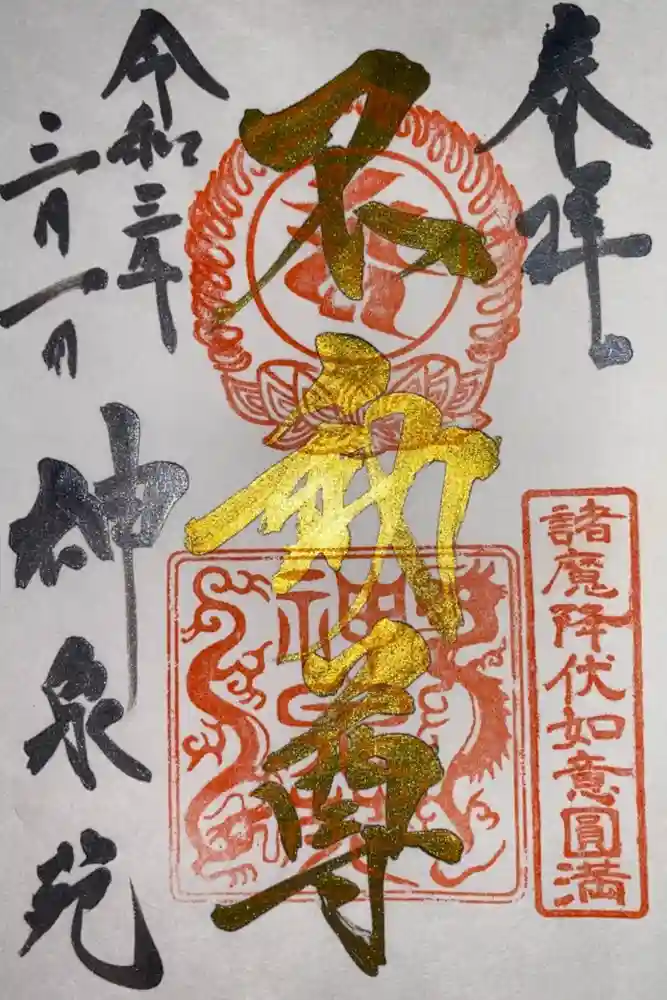 奉拝
諸魔降伏如意圓満
不動尊
神泉苑
令和三年
三月一日
神泉苑